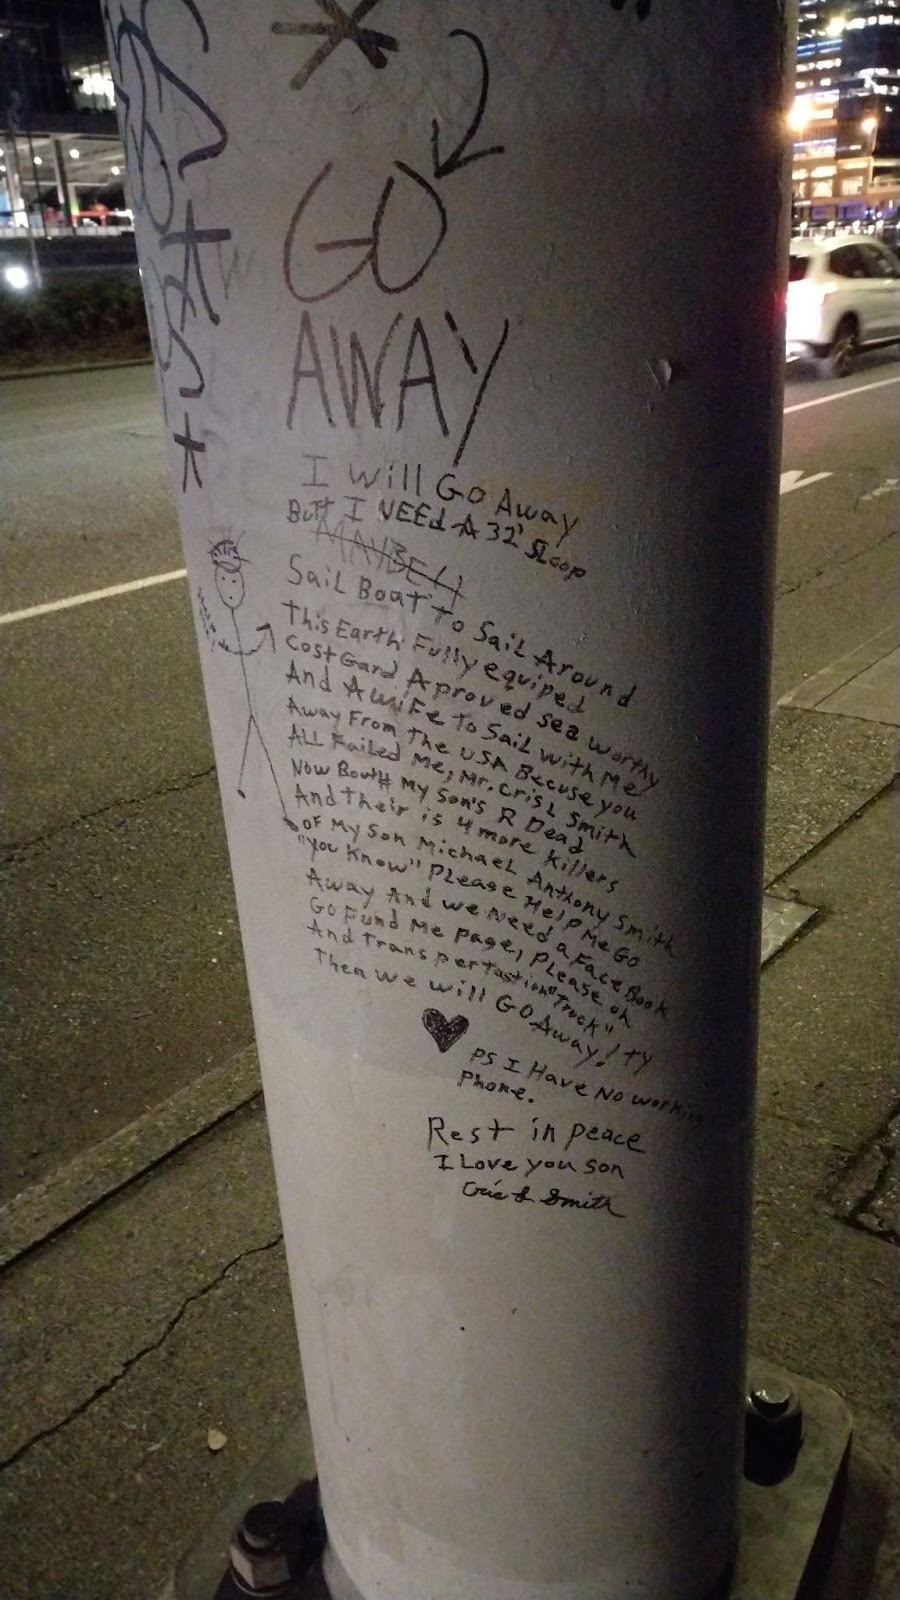 GO
AWAY
I will Go Away
Butt I NEEd A 32' Sloop
MAYBE!!
Sail Boat To Sail Around
This Earth Fully equiped
Cost Gard Aproved sea worthy
And A wife To Sail with Me
Away From The USA Becuse you
ALL Failed Me, Mr. Cris L Smith
Now Bouth My Son's R Dead
And Their is 4 more Killers
OF My Son Michael Anthony Smith
"You Know" Please Help Me Go
Away And we Need a Face Book
Go Fund Me page, please oh
And Transpertastion "Truck"
Then we will GO Away! TY
PS I Have No working
Phone.
Rest in peace
I Love you son
Smith